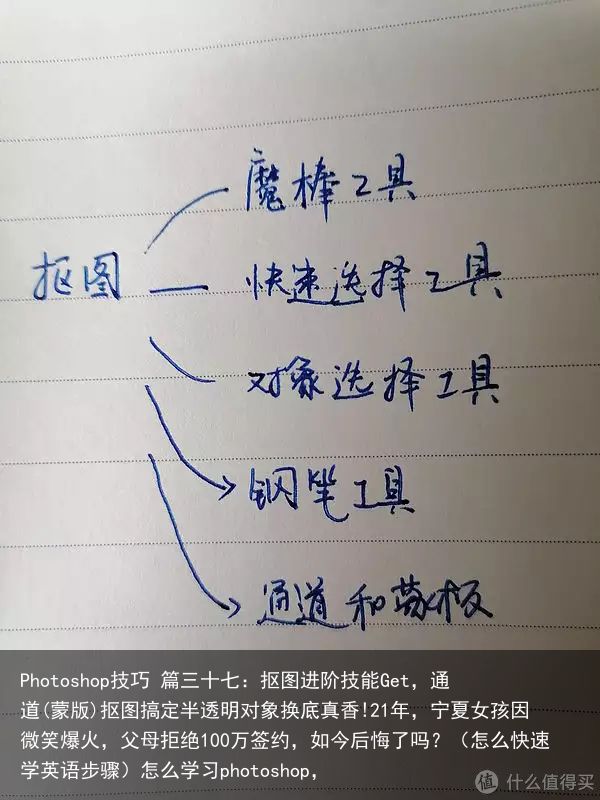 魔棒工具
抠图
快速选择工具
对象选择工具
钢笔工具
通道和蒙板
Photoshop技巧 篇三十七：抠图进阶技能Get，通
道(蒙版)抠图搞定半透明对象换底真香!21年，宁夏女孩因
微笑爆火，父母拒绝100万签约，如今后悔了吗？（怎么快速
学英语步骤）怎么学习photoshop，
值 什么值得买